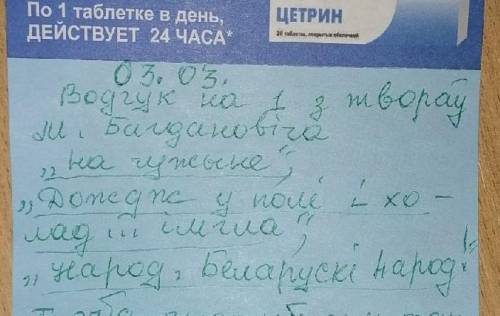 По 1 таблетке в день,
ДЕЙСТВУЕТ 24 ЧАСА*
ЦЕТРИН
20 таблеток, покрытых оболочкой
03.03.
Водгук на 1 з твораў
М. Багдановіча
„на чужыне",
„Дождж у полі і хо-
лад ... імгла",
„Народ, Беларускі Народ!"